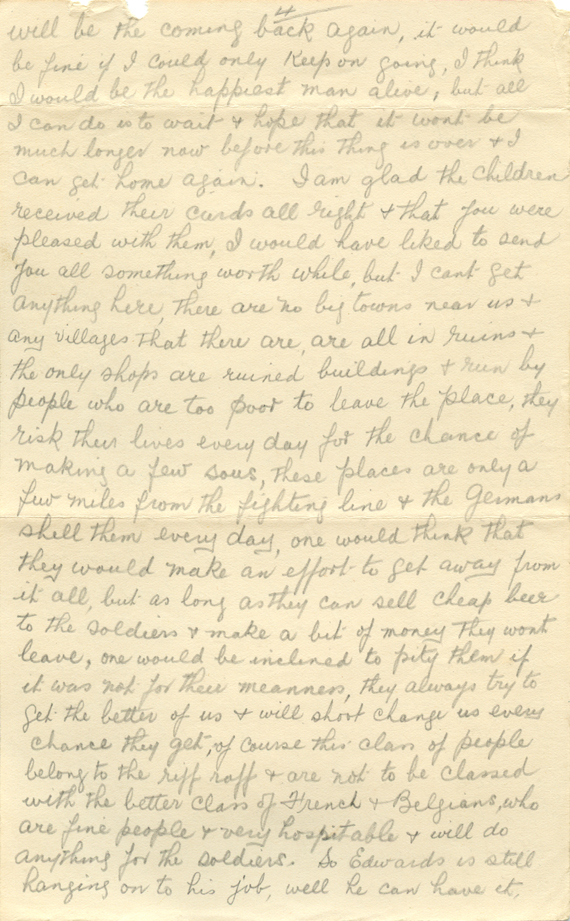 4
will be the coming back again, it would
be fine if I could only keep on going, I think
I would be the happiest man alive, but all
I can do is to wait & hope that it wont be
much longer now before this thing is over & I
can get home again. I am glad the Children
received their cards all right & that you were
pleased with them, I would have liked to send
you all something worth while, but I cant get
anything here, there are no big towns near us &
any villages that there are, are all in ruins &
the only shops are ruined buildings & run by
people who are too poor to leave the place, they
risk their lives every day for the chance of
making a few sous, these places are only a
few miles from the fighting line & the Germans
shell them every day, one would think that
they would make an effort to get away from
it all, but as long as they can sell cheap beer
to the soldiers & make a bit of money they wont
leave, one would be inclined to pity them if
it was not for their meanness, they always try to
get the better of us & will short change us every
chance they get, of course this class of people
belong to the riff raff & are not to be classed
with the better class of French & Belgians, who
are fine people & very hospitable & will do
anything for the soldiers. So Edwards is still
hanging on to his job, well he can have it,